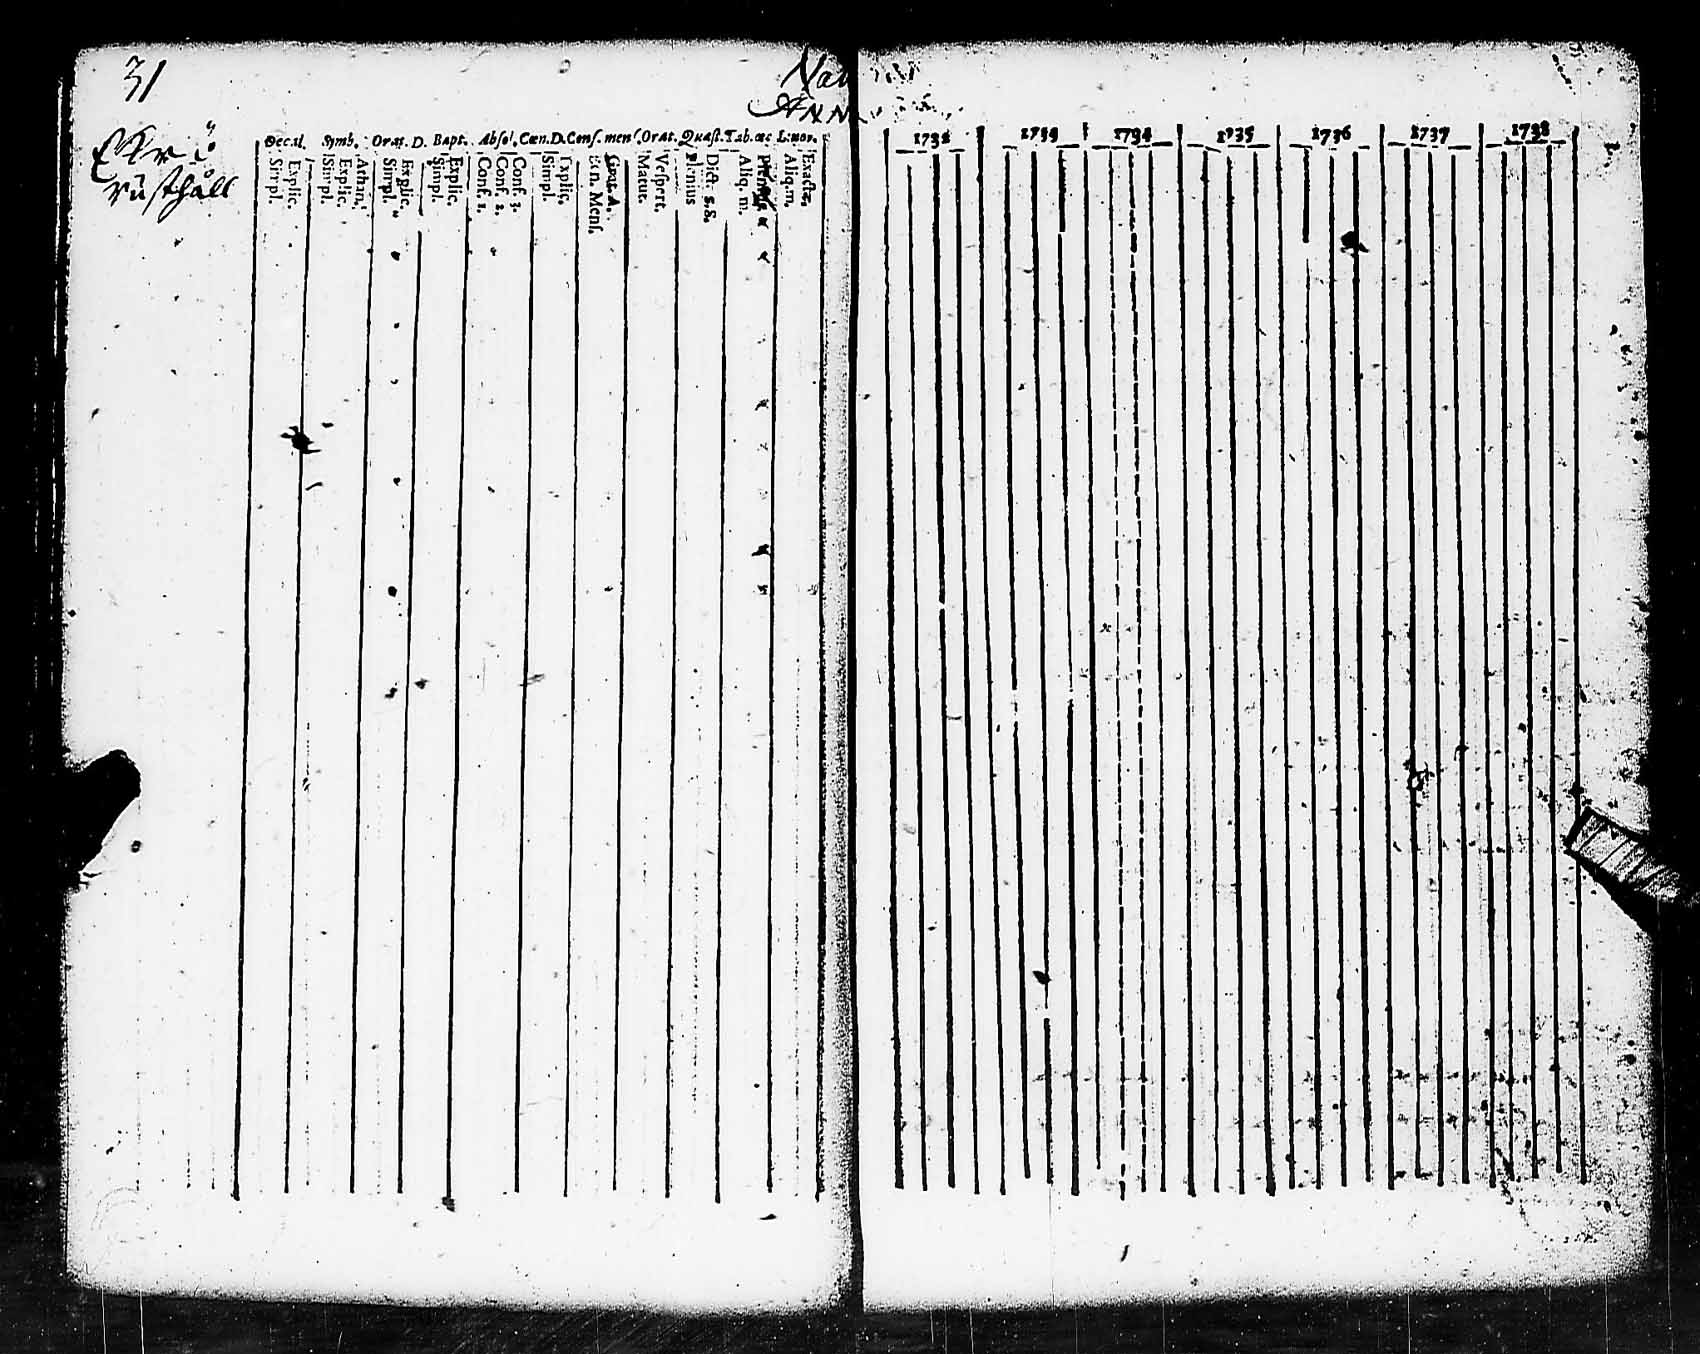 31
ANN
rusthåll
Decal. Symb. Orat. D. Bapt. Absol. Cœn. D. Conf. mens. Orat. Quæst. Tab. œc L. mor.
Simpl.
Explic.
Simpl.
Explic.
Athan.
Simpl.
Explic.
Simpl.
Explic.
Conf. 1.
Conf. 2.
Conf. 3.
Simpl.
Explic.
Ben. Mens.
Grat. A.
Matut.
Vespert.
Plenius
Dict. S. S.
Aliq. m.
Aliq. m.
Exacte.
1732 1733 1734 1735 1736 1737 1738